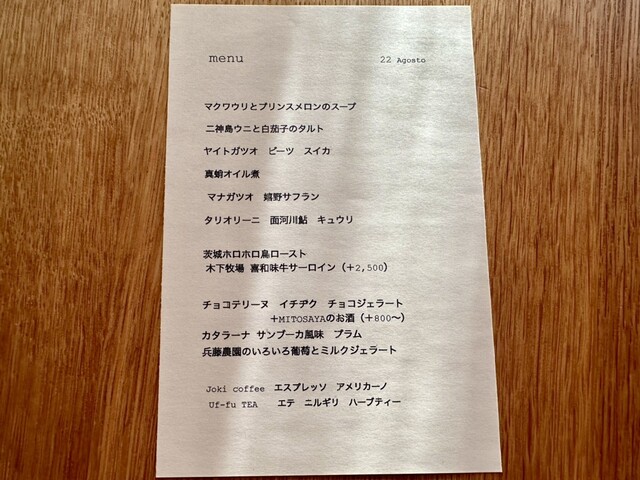 menu
22 Agosto
マクワウリとプリンスメロンのスープ
二神島ウニと白茄子のタルト
ヤイトガツオ ビーツ スイカ
真蛸オイル煮
マナガツオ 嬉野サフラン
タリオリーニ 面河川鮎 キュウリ
茨城ホロホロ鳥ロースト
木下牧場 喜和味牛サーロイン（＋2,500）
チョコテリーヌ イチヂク チョコジェラート
＋MITOSAYAのお酒（＋800〜）
カタラーナ サンブーカ風味 プラム
兵藤農園のいろいろ葡萄とミルクジェラート
Joki coffee エスプレッソ アメリカーノ
Uf-fu TEA エテ ニルギリ ハーブティー